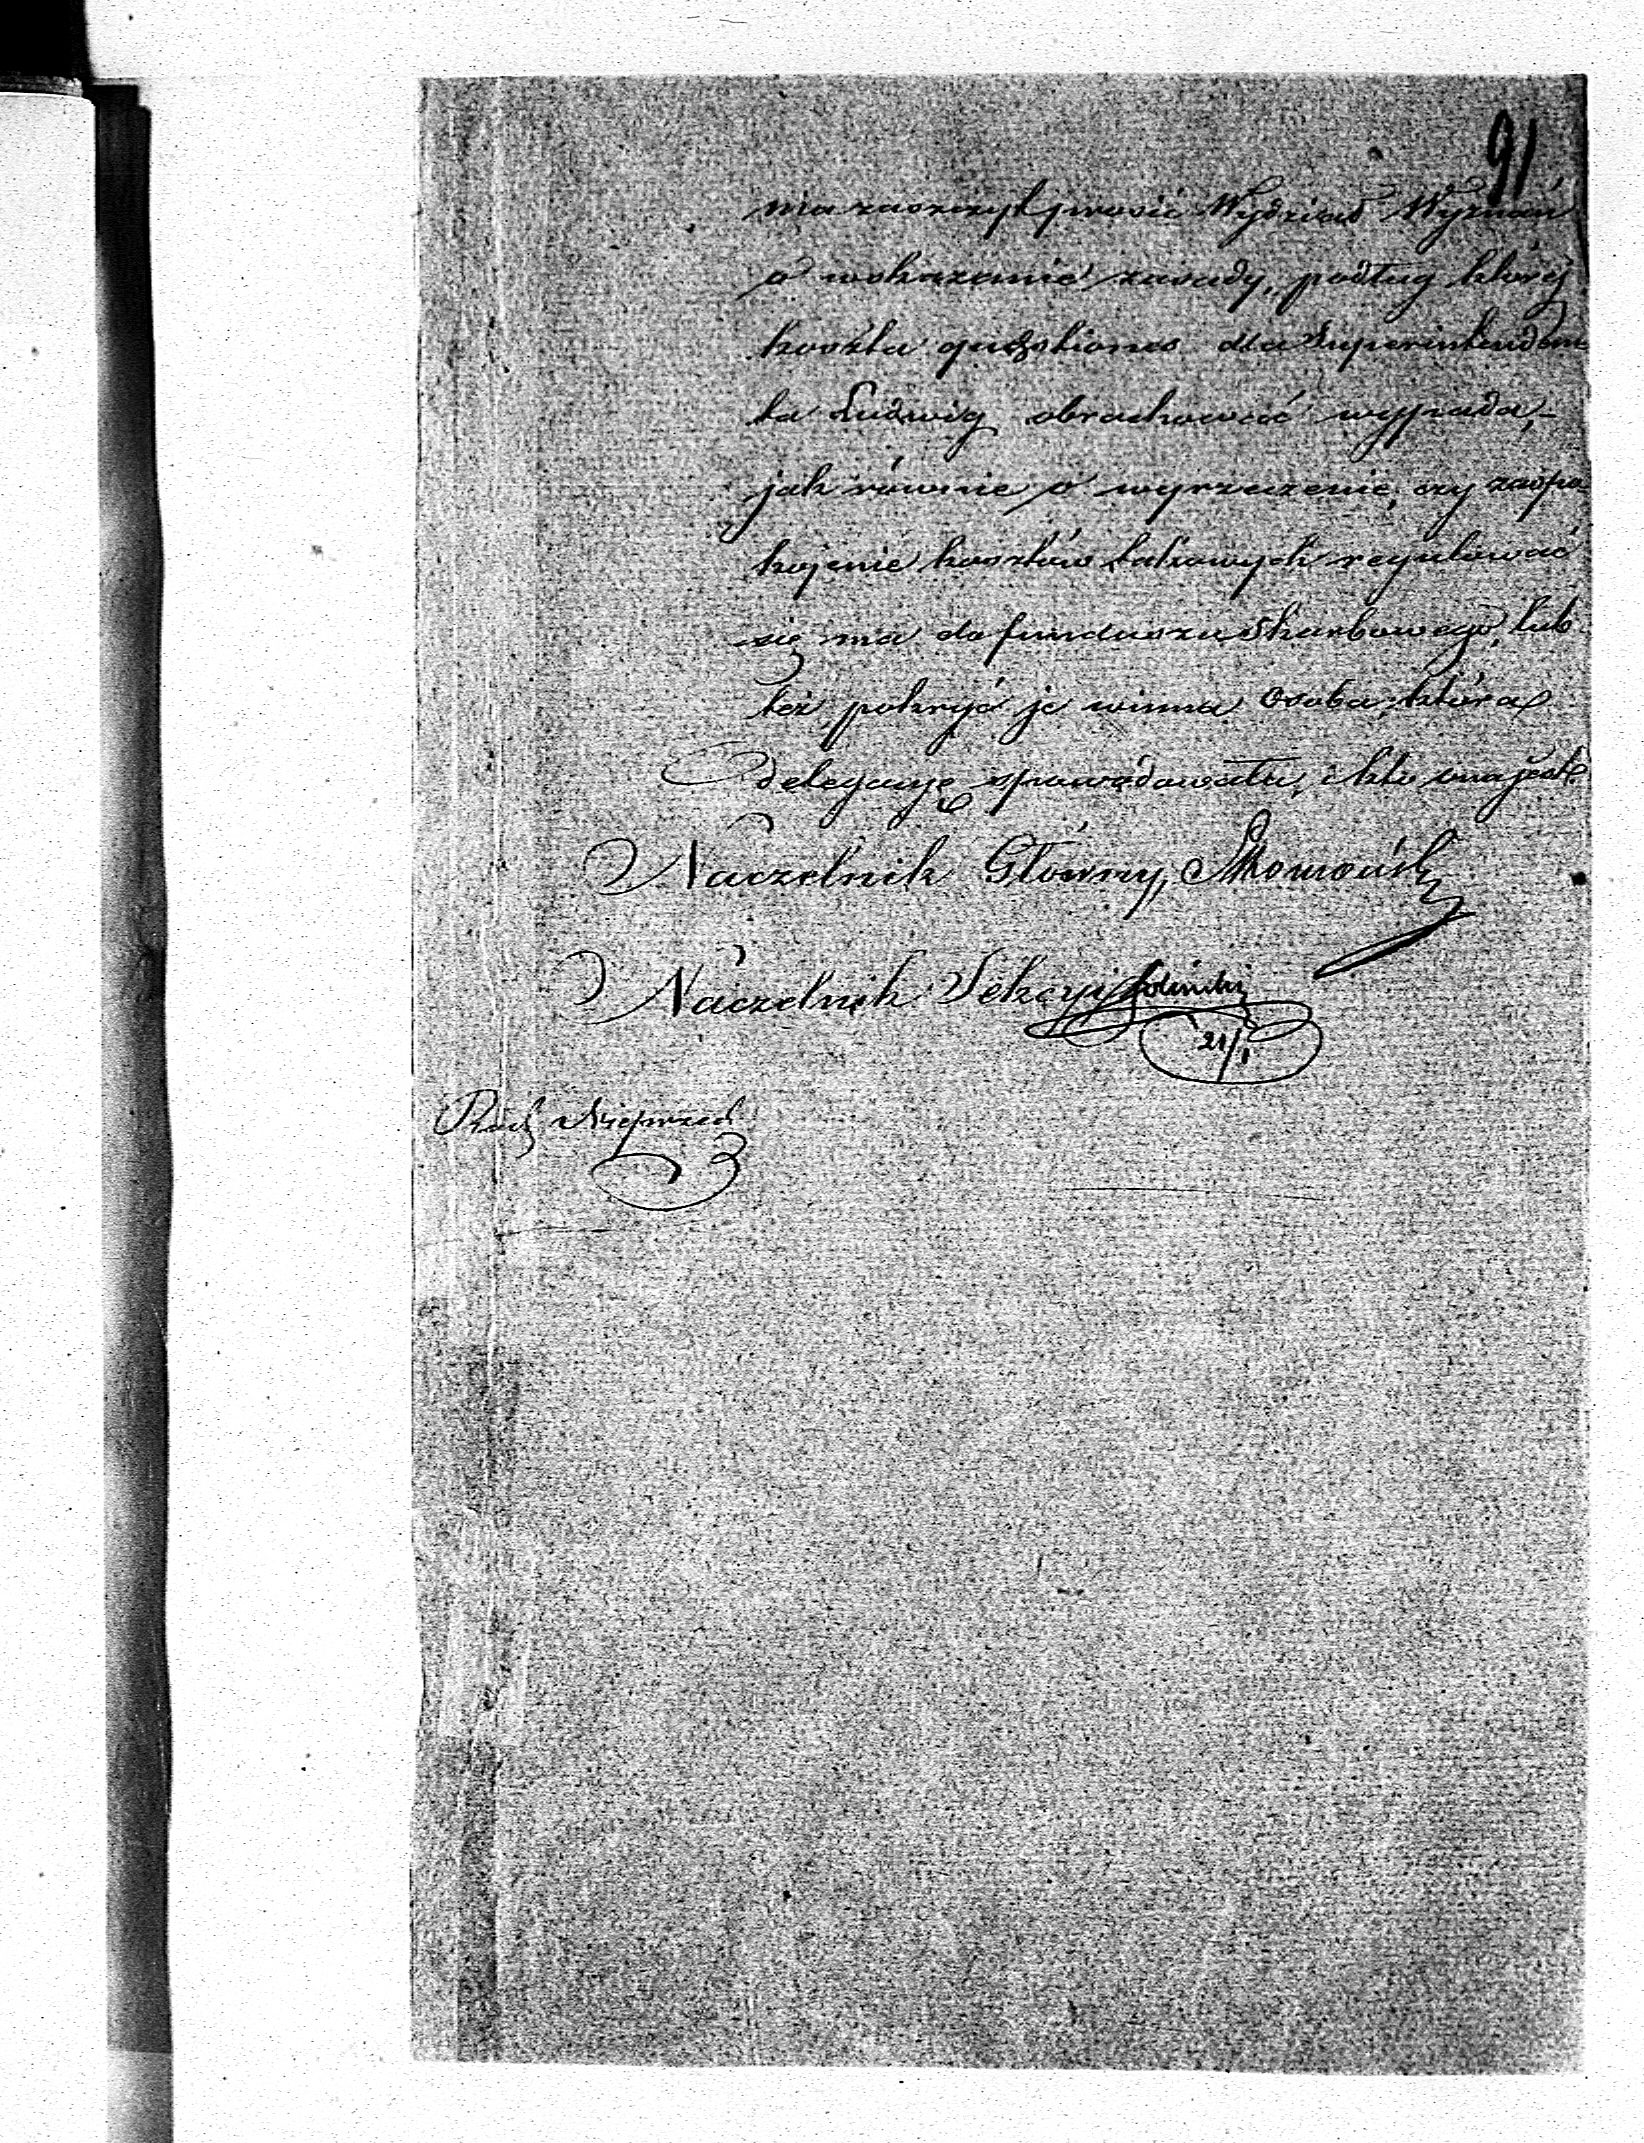 91
ma zaszczyt prosić Wydział Wyznań
o wskazanie zasady, podług której
koszta quaestionis dla Superintenden
ta Ludwig obrachować wypada,-
jak równie o wyrzeczenie, czy zaspo
kojenie kosztów takowych regulować
się ma do funduszu Skarbowego, lub
też, pokryć je winna osoba, która
delegacyę spowodowała, i kto oną jest.
Naczelnik Główny,
Naczelnik Sekcyi
21/1